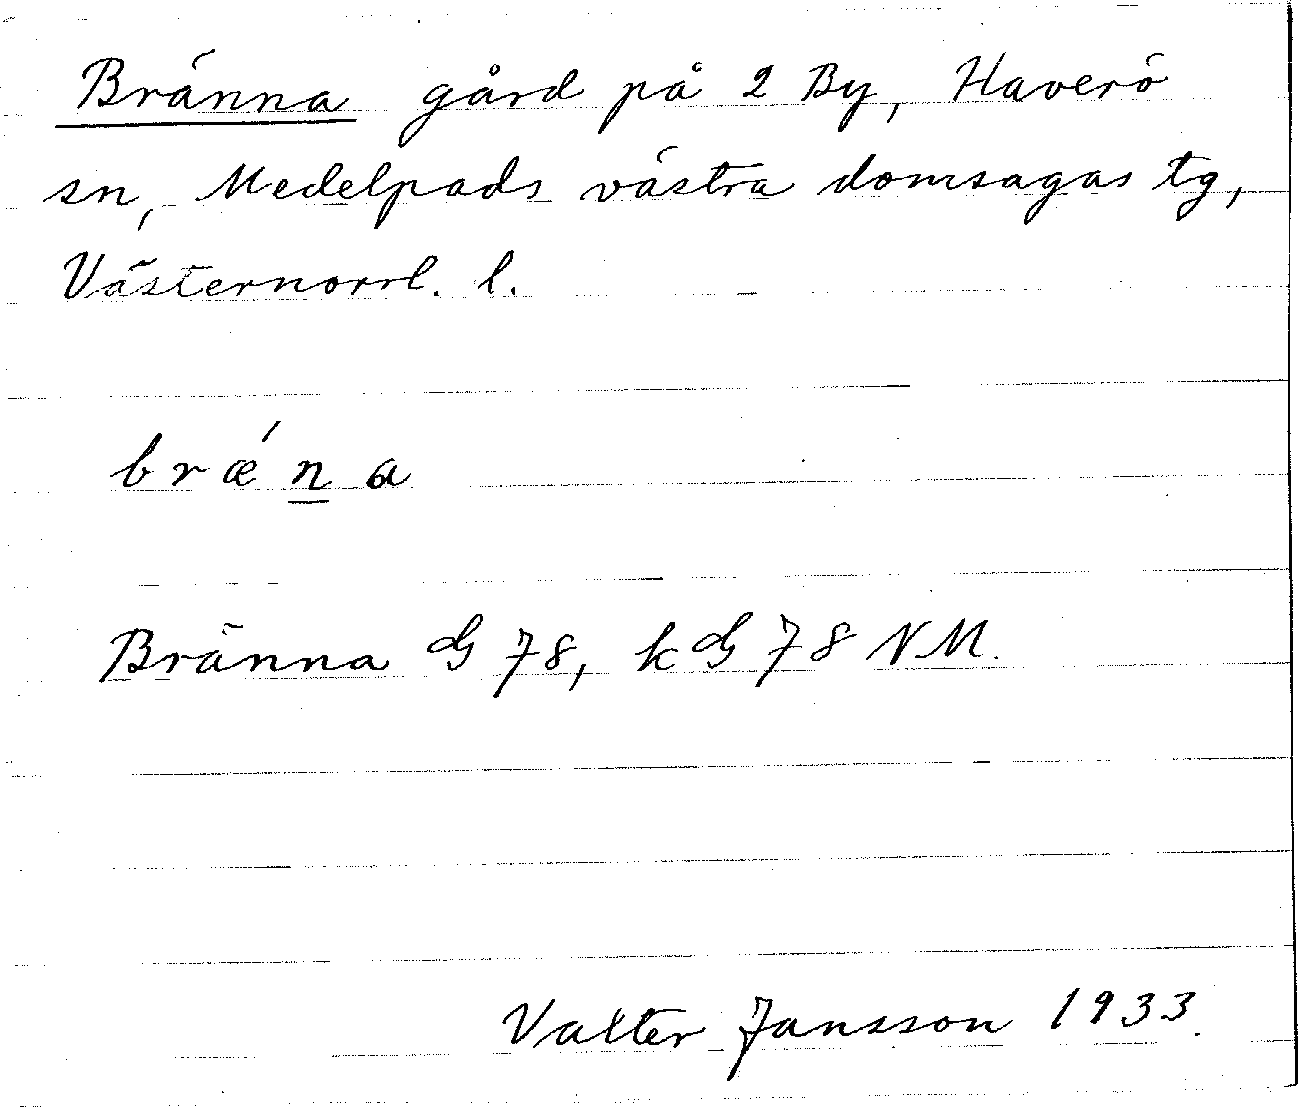 Bränna gård på 2 By, Haverö
sn, Medelpads västra domsagas tg,
Västernorrl. l.
bræ´n̲a
Bränna G 78, kG 78 NM.
Valter Jansson 1933.